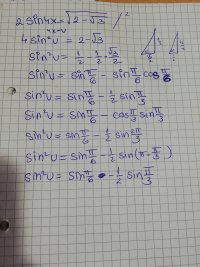 2 sin4x = √2 - √3 /²
4x=υ
4 sin²υ = 2 - √3
sin²υ = 1/2 - 1/2 · √3/2
sin²υ = sin π/6 - sin π/6 cos π/6
sin²υ = sin π/6 - 1/2 sin π/3
sin²υ = sin π/6 - cos π/3 sin π/3
sin²υ = sin π/6 - 1/2 sin 2π/3
sin²υ = sin π/6 - 1/2 sin(π - π/3)
sin²υ = sin π/6 - 1/2 sin π/3